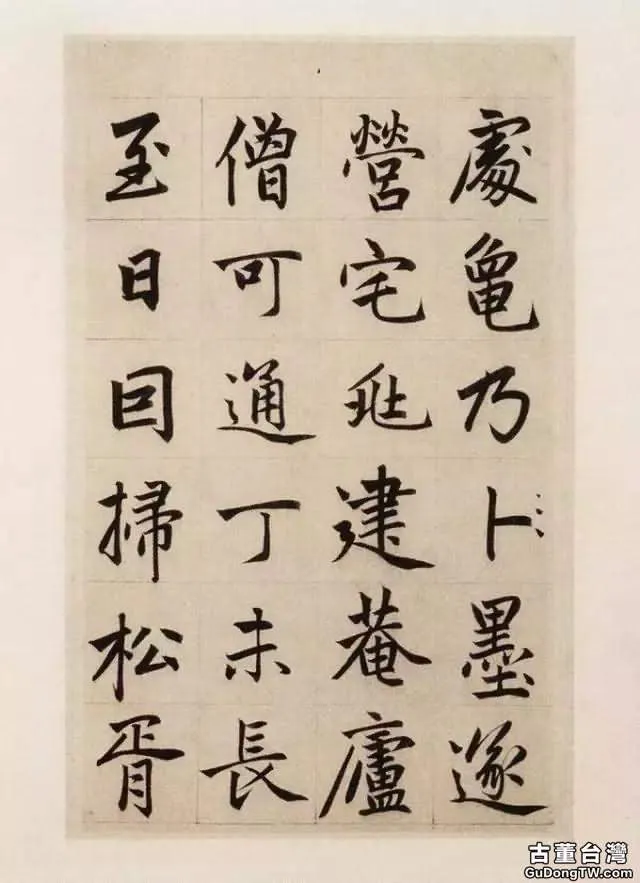 處龜乃卜墨遂
營宅兆建菴廬
僧可通丁未長
至日因掃松胥
古董台灣
GuDongTW.com